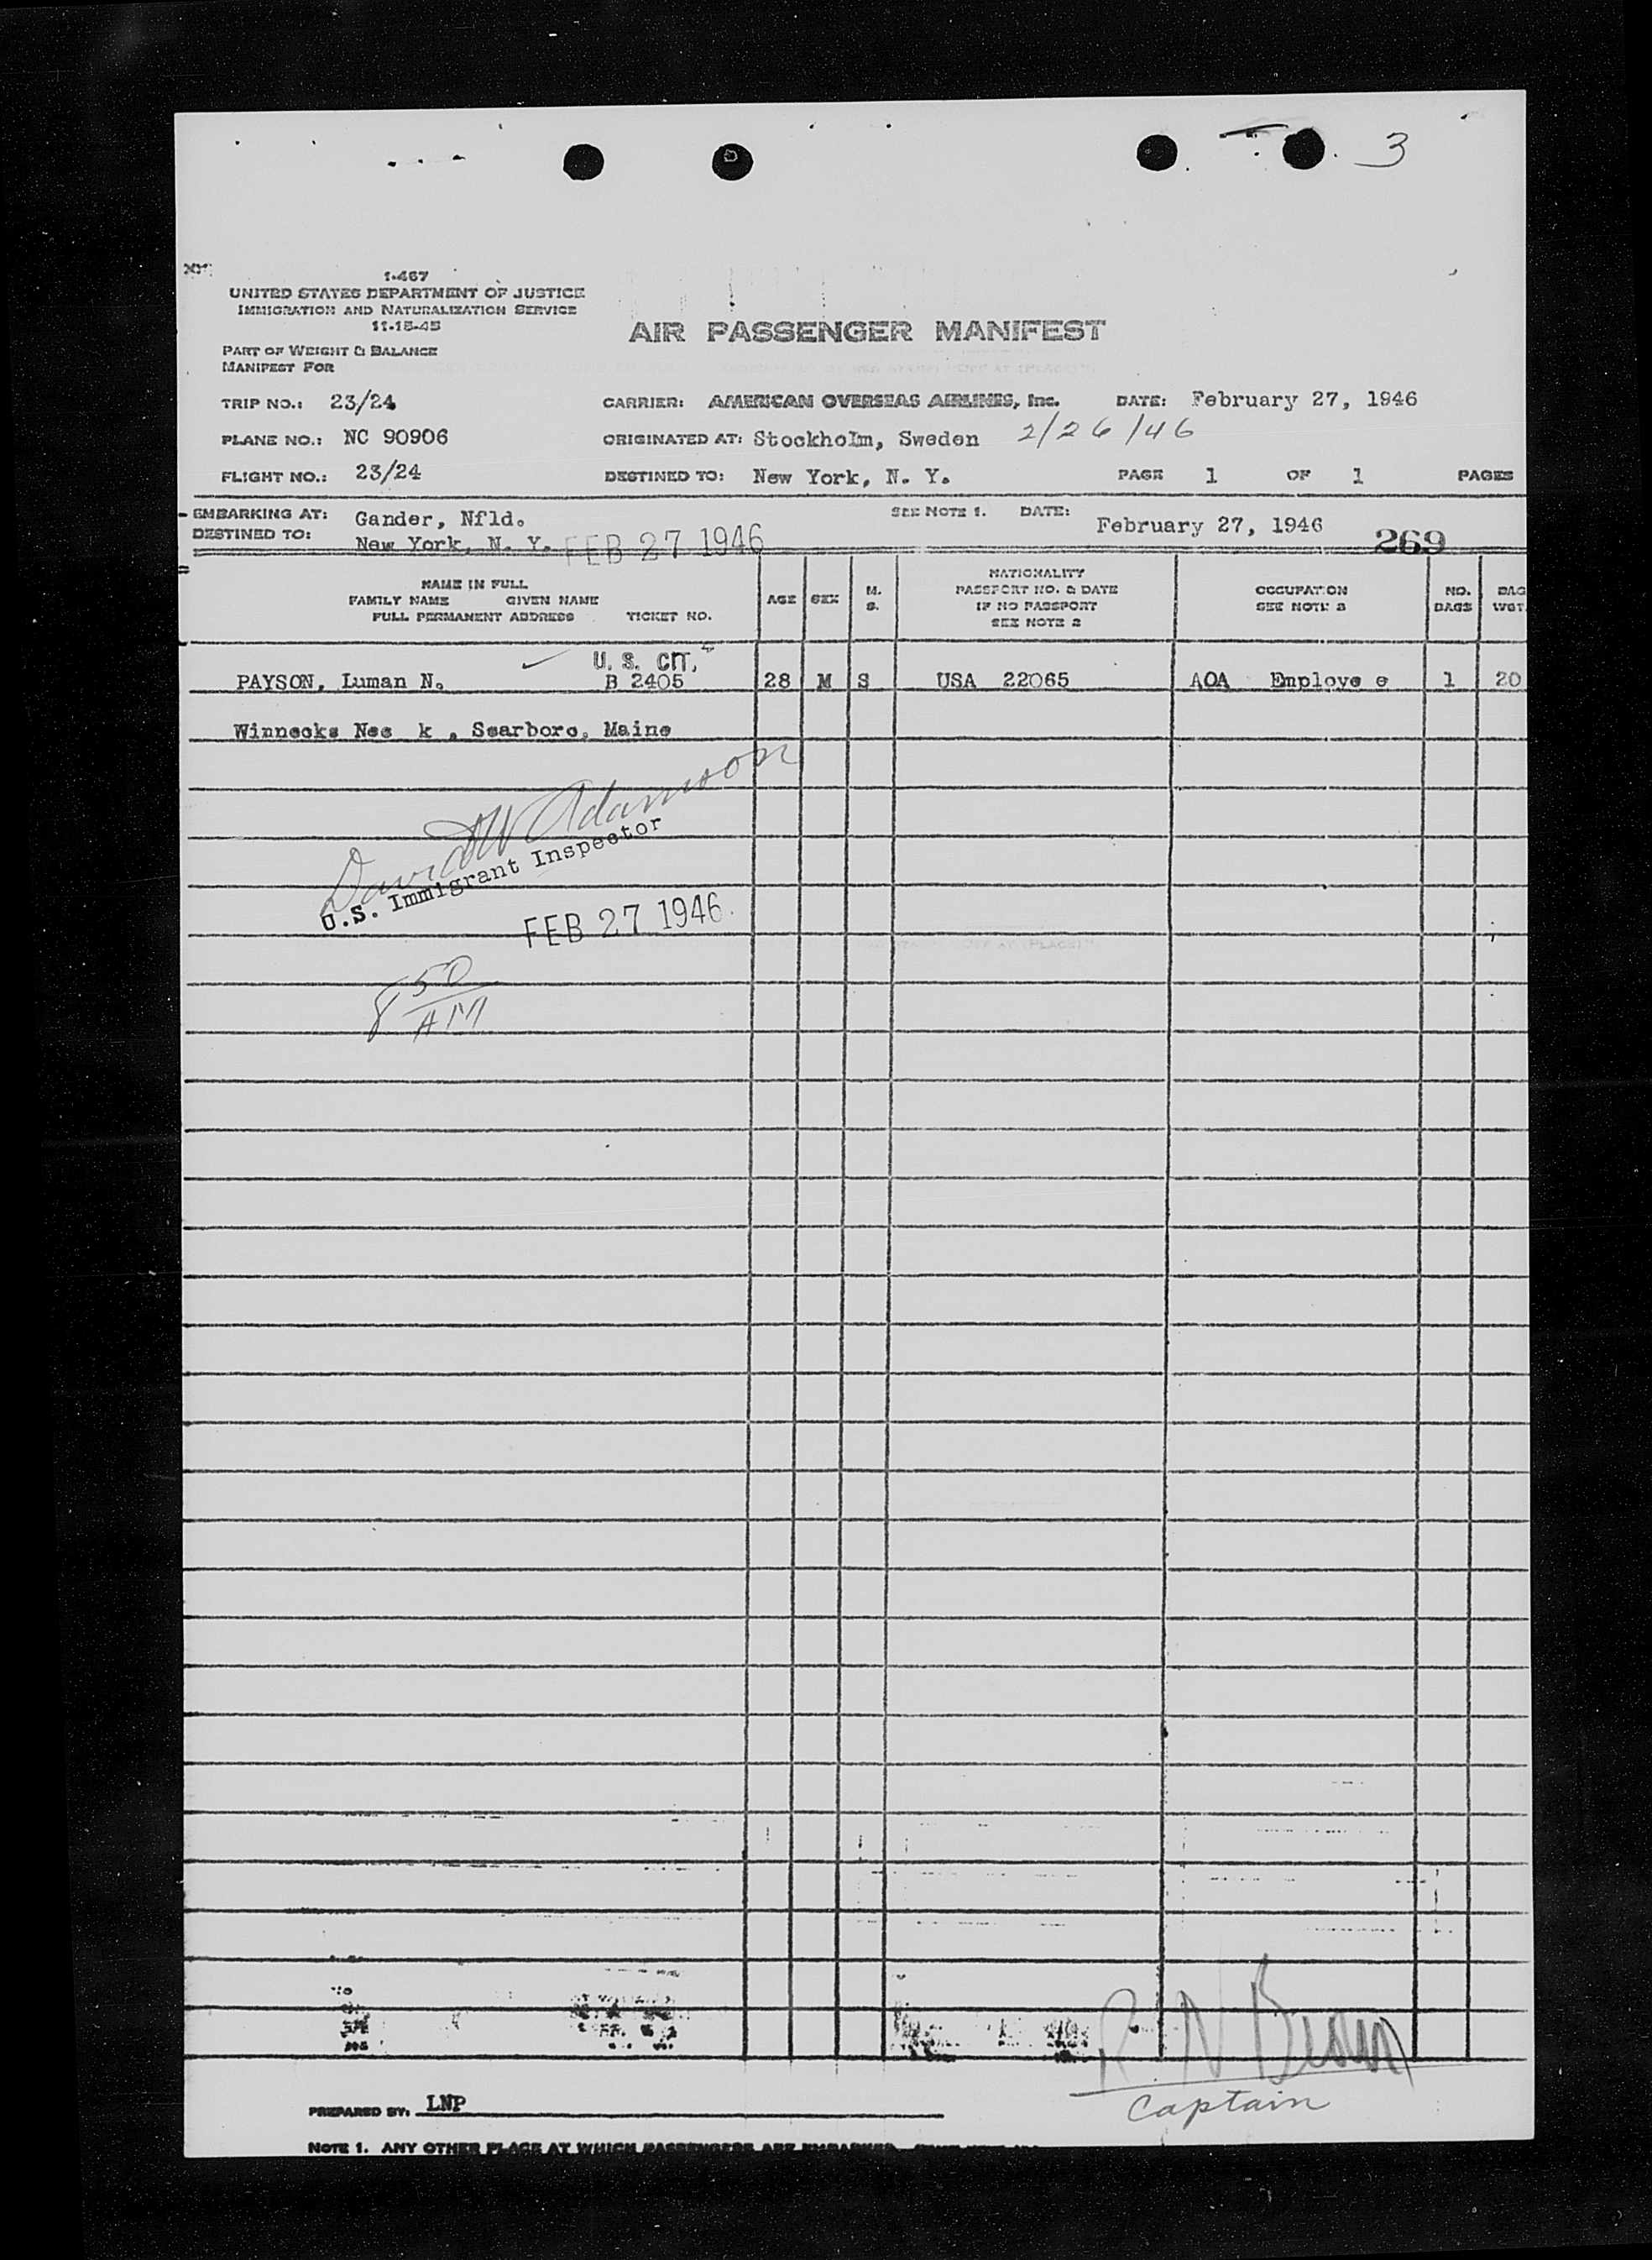 3
1-467
UNITED STATES DEPARTMENT OF JUSTICE
IMMIGRATION AND NATURALIZATION SERVICE
11-15-45
AIR PASSENGER MANIFEST
PART OF WEIGHT & BALANCE
MANIFEST FOR
TRIP NO.: 23/24 CARRIER: AMERICAN OVERSEAS AIRLINES, Inc. DATE: February 27, 1946
PLANE NO.: NC 90906 ORIGINATED AT: Stockholm, Sweden 2/26/46
FLIGHT NO.: 23/24 DESTINED TO: New York, N. Y. PAGE 1 OF 1 PAGES
EMBARKING AT: Gander, Nfld. SEE NOTE 1. DATE: February 27, 1946 269
DESTINED TO: New York, N. Y. FEB 27 1946
NAME IN FULL
FAMILY NAME GIVEN NAME
FULL PERMANENT ADDRESS TICKET NO.
AGE SEX M. S.
NATIONALITY
PASSPORT NO. & DATE
IF NO PASSPORT
SEE NOTE 2
OCCUPATION
SEE NOTE 3
NO. BAGS
BAG WGT.
U. S. CIT,
PAYSON, Luman N. B 2405 28 M S USA 22065 AOA Employe e 1 20
Winnecks Nec k , Scarboro, Maine
David W Adamson
U.S. Immigrant Inspector
FEB 27 1946
8 50 AM
R N Brown
Captain
PREPARED BY: LNP
NOTE 1. ANY OTHER PLACE AT WHICH PASSENGERS ARE EMBARKED